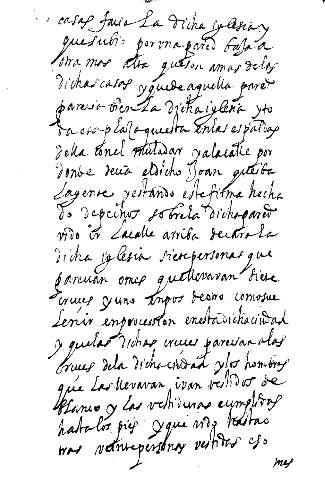 casas facia la dicha iglesia y
que subio por vna pared baxa a
otra mas alta que son amas de las
dichas casas y que de aquella pared
parescia bien la dicha iglesia y to
da esa plaza questa en las espaldas
della con el muladar y a la calle por
donde devia el dicho Joan que iba
la gente y estando este firma hecha
do de pechos sobre la dicha pared
vido ir la calle arriba de cara la
dicha iglesia siete personas que
parecian omes que llevavan siete
cruces y uno en pos de otro como sue
len ir en procession en esta dicha ciudad
y que las dichas cruces parescian a las
cruces de la dicha ciudad y los hombres
que las llevavan ivan vestidos de
blanco y las vestiduras cumplidas
hasta los pies y que vido hasta o
tras veinte personas vestidas eso
mes